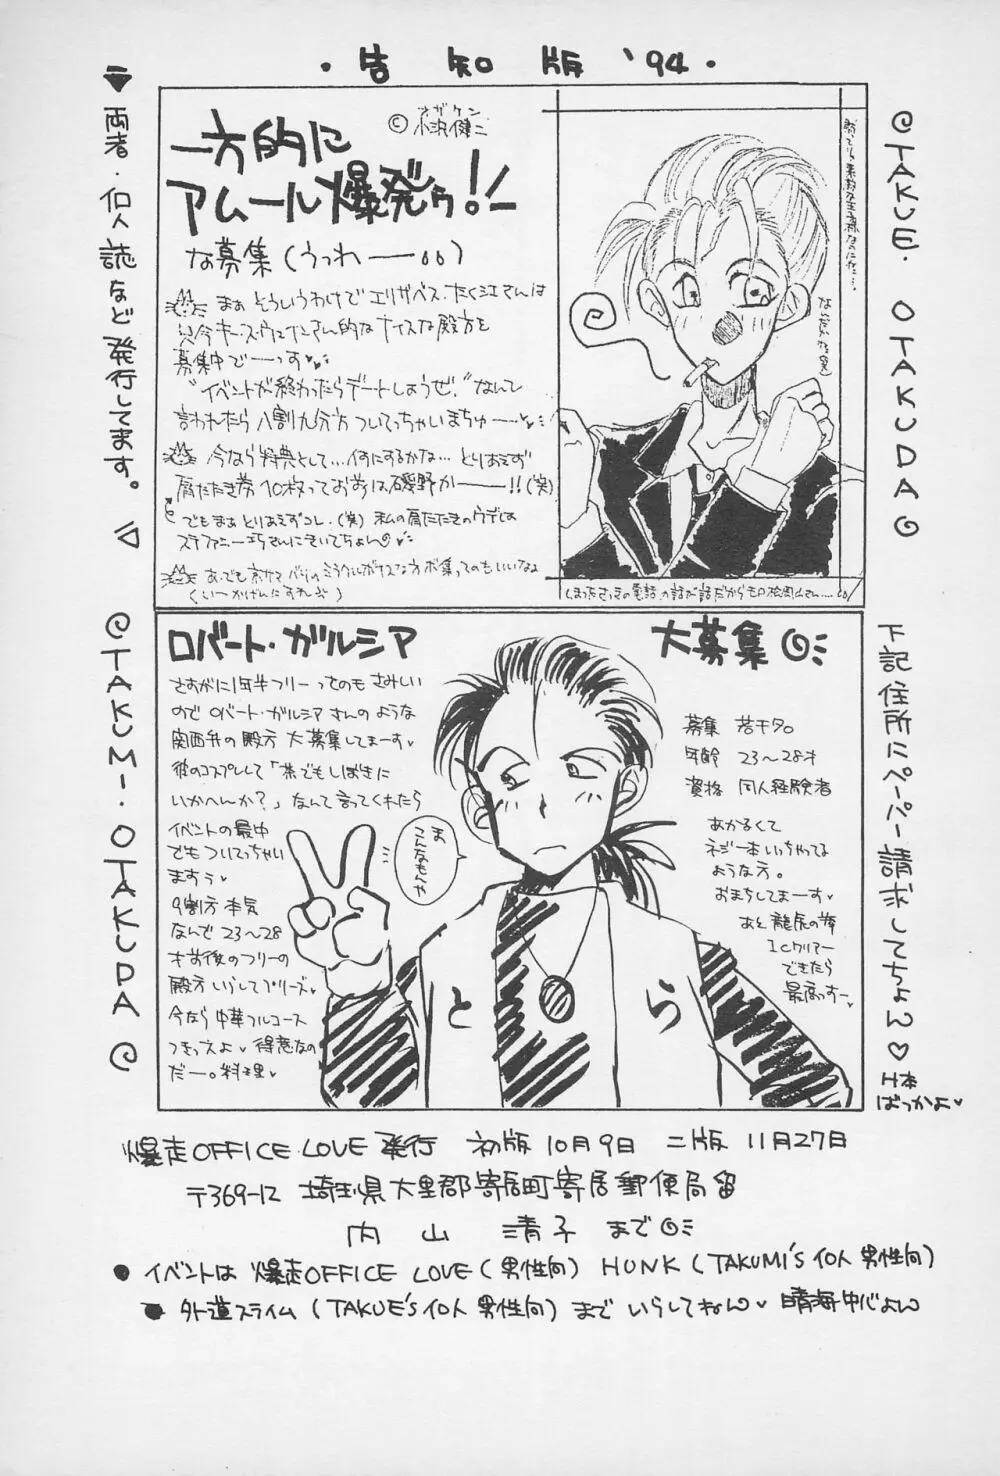 ・告知版 '94・
一方的に
アムール爆発ゥ!!
オザケン
©小沢健二
な募集(うっわーー。。)
まぁ そういうわけで エリザベス・たく江さんは
只今 キース・ウェインさん的なナイスな殿方を
募集中でーーっす♥♥
"イベントが終わったらデートしようぜ!"なんて
言われたら 八割九分方 ついてっちゃいまちゅーー♥
今なら特典として…何にするかな… とりあえず
肩たたき券10枚っておゎ 磯野かーーー!!(笑)
でもまぁとりあえずコレ・(笑) 私の肩たたきのウデは
ステファニー
さんにきいてちょん♥
あ、でも
なカボ集ってのもいいなぁ
(いーかげんにすれぶ)
ロバート・ガルシア
大募集
さすがに1年半フリーってのも さみしい
ので ロバート・ガルシアさんのような
関西弁の殿方 大募集してまーす♥
彼のコスプレして「茶でもしばきに
いかへんか?」なんて言ってくれたら
イベントの最中
でもついてっちゃい
ますぅ♥
9割方本気
なんで 23〜28
才前後のフリーの
殿方いらしてプリーズ♥
今なら中華フルコース
つきっスよ♥ 得意なの
だー。料理♥
ま
こんなもんや
とら
募集 若干名
年齢 23〜28才
資格 同人経験者
あかるくて
ネジ一本いっちゃってる
ような方。
おまちしてまーす♥
あと龍虎の拳
1Cクリアー
できたら
最高っすー♥
▼両者・個人誌など発行してます。◁
@TAKUMI・OTAKUDA@
@TAKUE・OTAKUDA@
下記住所にペーパー請求してちょん♡
H本
ばっかよ♥
爆走OFFICE LOVE 発行 初版10月9日 二版 11月27日
〒369-12 埼玉県大里郡寄居町寄居郵便局留
内山 清子 まで
● イベントは 爆走OFFICE LOVE(男性向) HUNK(TAKUMI'S 個人 男性向)
● 外道スライム(TAKUE'S 個人 男性向) まで いらしてねん♥ 晴海中心よん